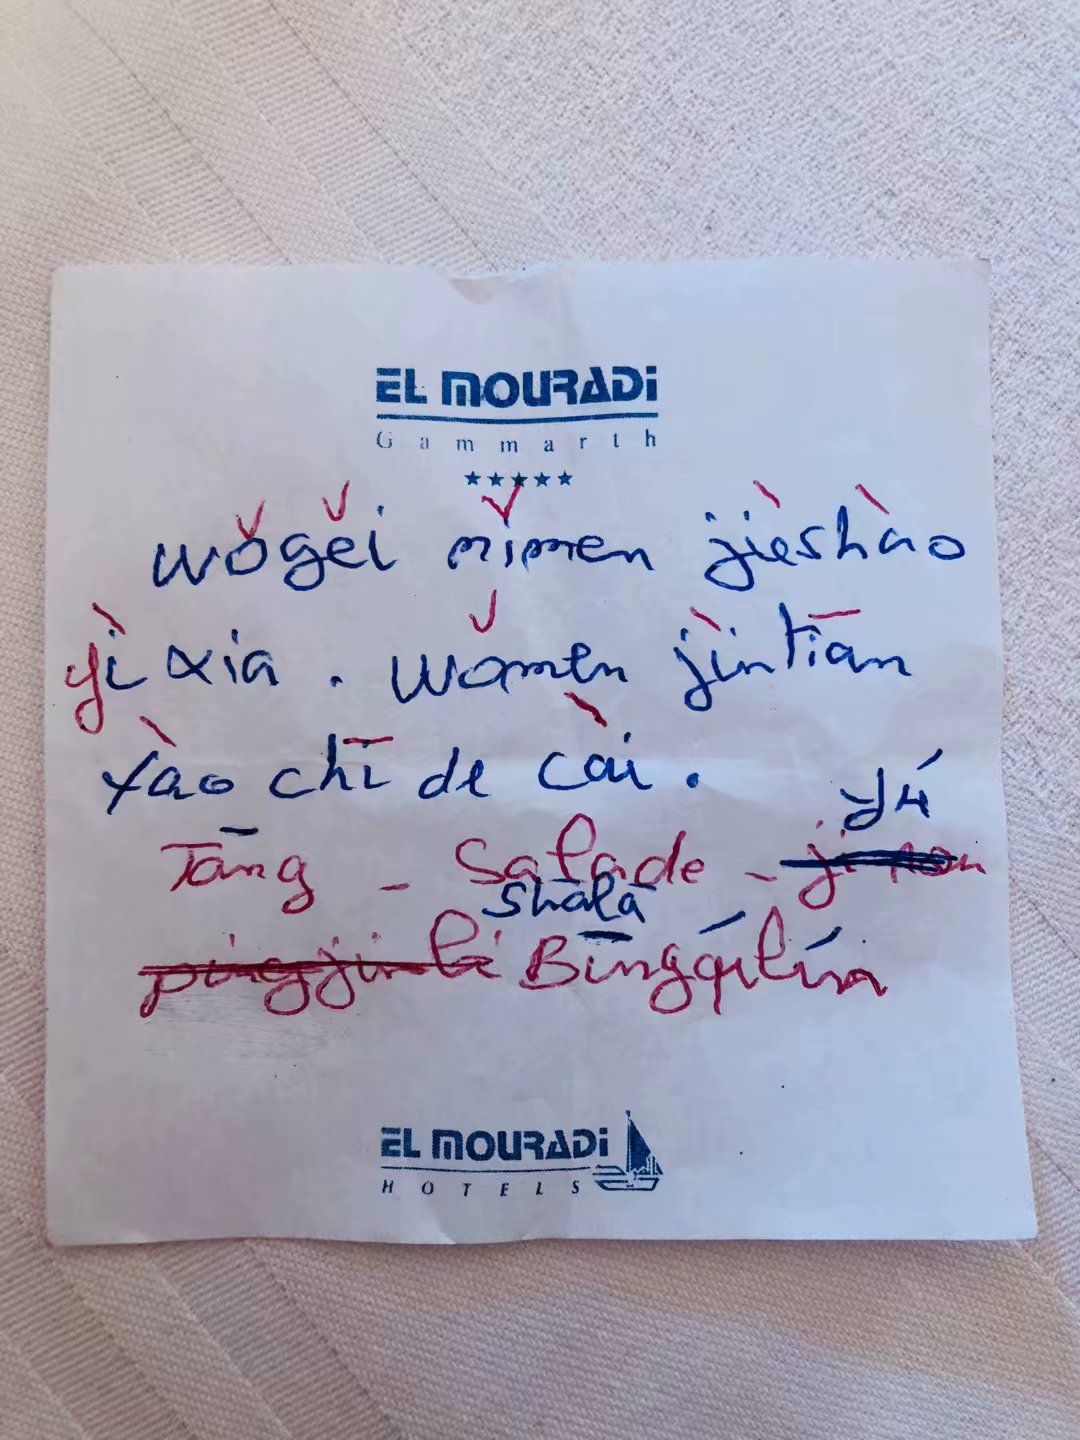 EL MOURADi
Gammarth
wǒgěi nǐmen jièshào
yì xia . wǒmen jìntīān
xào chī de cài .
yú
Tāng - Salade -
shālā
pingjinli Bīngqílín
EL MOURADi
HOTELS